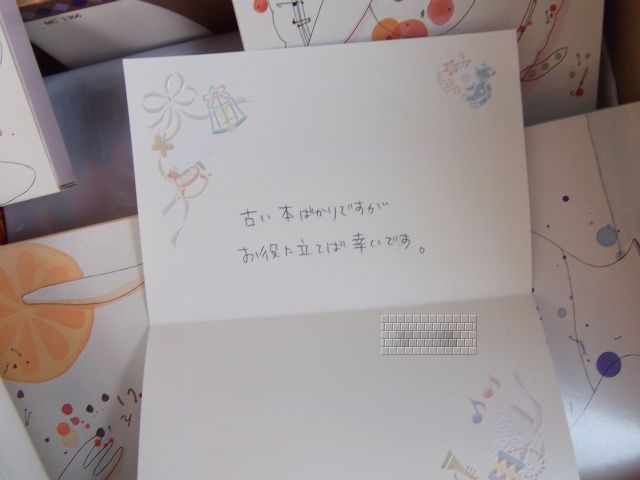 MC 1366
古い本ばかりですが
お役に立てば幸いです。